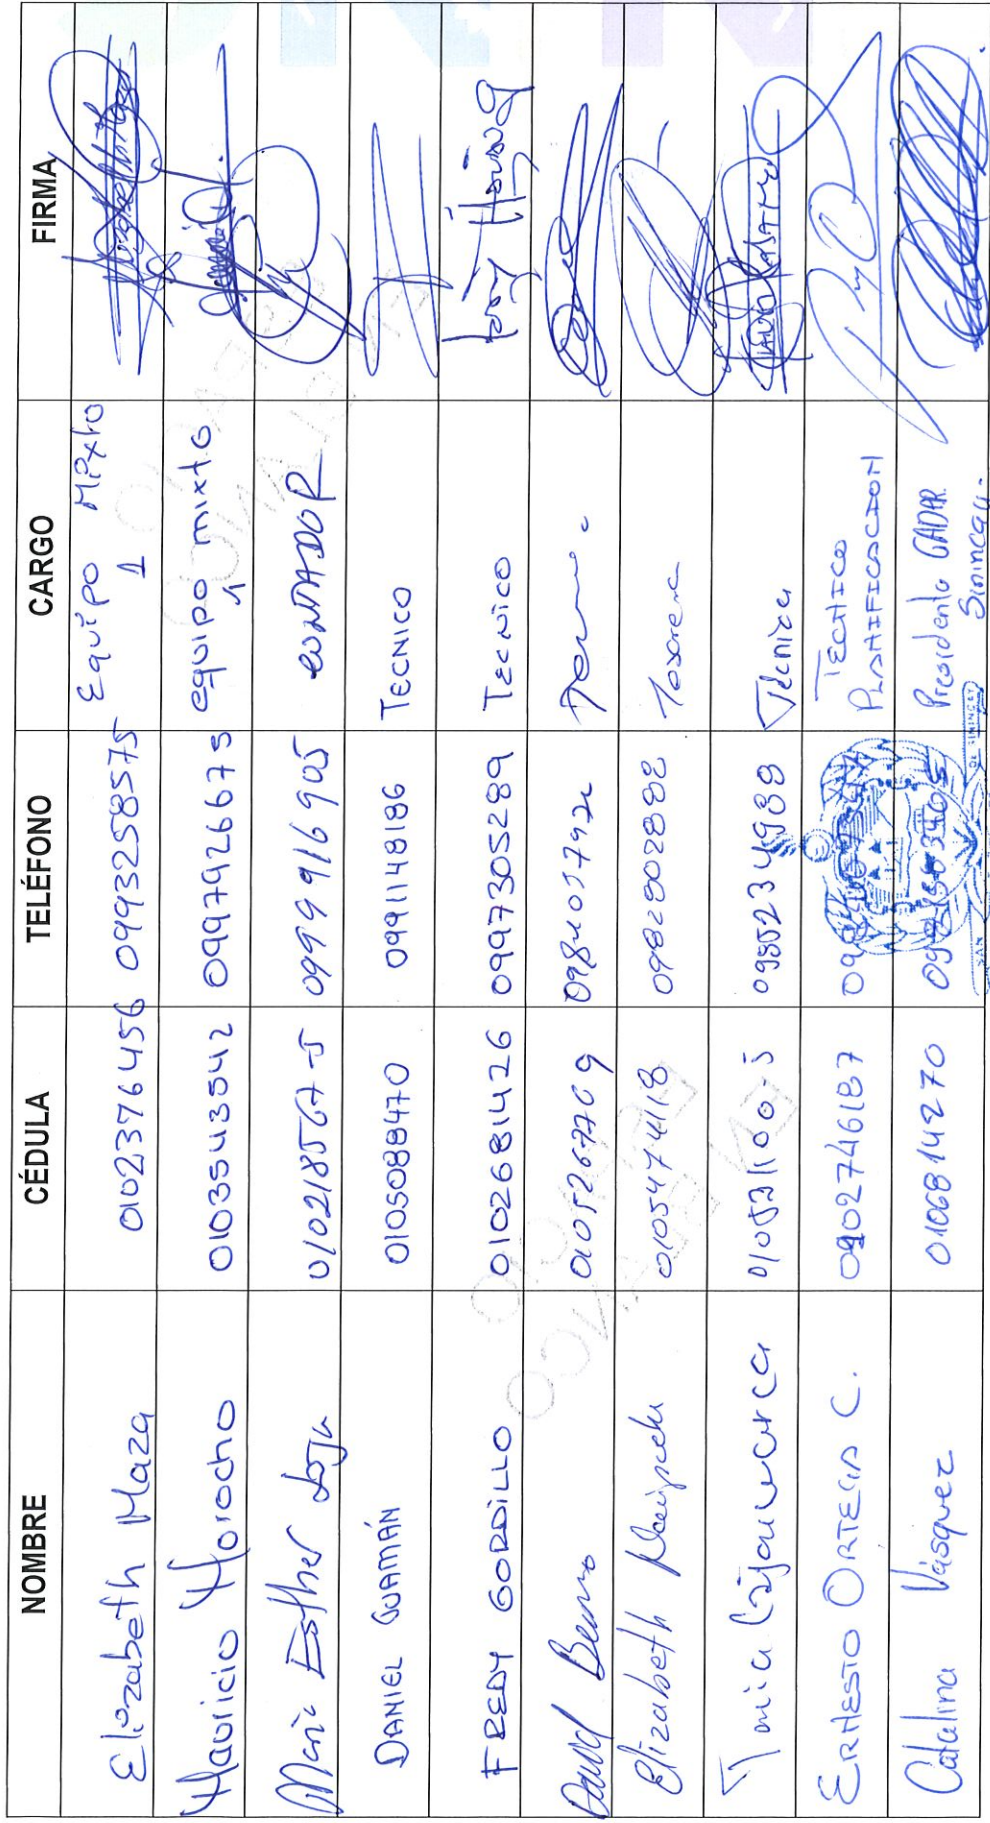 NOMBRE CÉDULA TELÉFONO CARGO FIRMA
Elizabeth Maza 0102376456 0993258575 Equipo Mixto
1
Mauricio Morocho 0103543542 0997926675 equipo mixto
1
Maria Esther Loja 010218567-5 0999916905 CONTADOR
DANIEL GUAMÁN 0105088470 0991148186 TECNICO
FREDY GORDILLO 0102681426 0997305289 TECNICO
David 0105267709
Elizabeth 0105474118 0982802882 Tesorera
Tania Cajamarca 010531100-5 0985234988 Técnica
ERNESTO ORTEGA C. 0902746187 TECNICO
PLANIFICACION
Catalina Vásquez 0106814270 Presidenta GADPR
Sinincay.